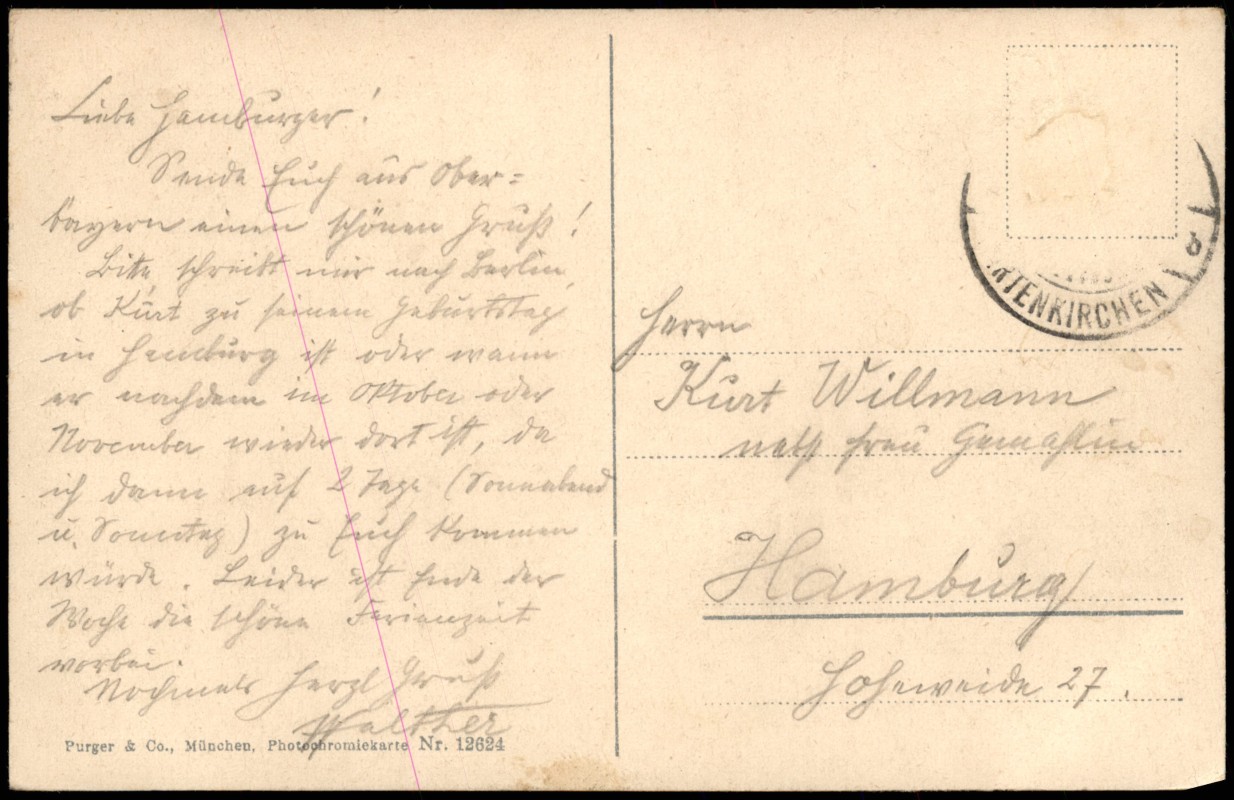 Liebe Hamburger!
Sende Euch aus Ober=
bayern einen schönen Gruß!
Bitte, schreibt mir nach Berlin,
ob Kurt zu seinem Geburtstag
in Hamburg ist oder wann
er nachdem im Oktober oder
November wieder dort ist, da
ich dann auf 2 Tage (Sonnabend
u. Sonntag) zu Euch kommen
würde. Leider ist Ende der
Woche die schöne Ferienzeit
vorbei.
Nochmals herzl Gruß
Walther
Purger & Co., München, Photochromiekarte Nr. 12624
RTENKIRCHEN
Herrn
Kurt Willmann
nebst Frau Gemahlin
Hamburg
Hoheweide 27.